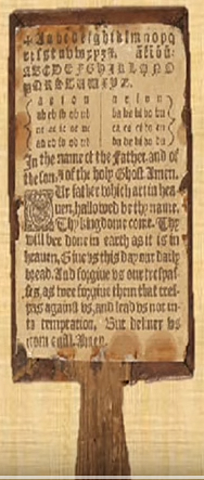 ✠ A a b c d e f g h i k l m n o p q
r s t u v w x y z &. a e i o u.
A B C D E F G H I K L M N O
P Q R S T U W X Y Z.
a e i o u a e i o u
ab eb ib ob ub ba be bi bo bu
ac ec ic oc uc ca ce ci co cu
ad ed id od ud da de di do du
In the name of the Father, and of
the Son, & of the holy Ghost. Amen.
Our father which art in hea-
uen, hallowed be thy name.
Thy kingdome come. Thy
will bee done in earth as it is in
heauen. Giue vs this day our daily
bread. And forgiue vs our trespas-
ses, as wee forgiue them that tres-
pas against vs, and lead vs not in-
to temptation, But deliuer vs
from euill. Amen.